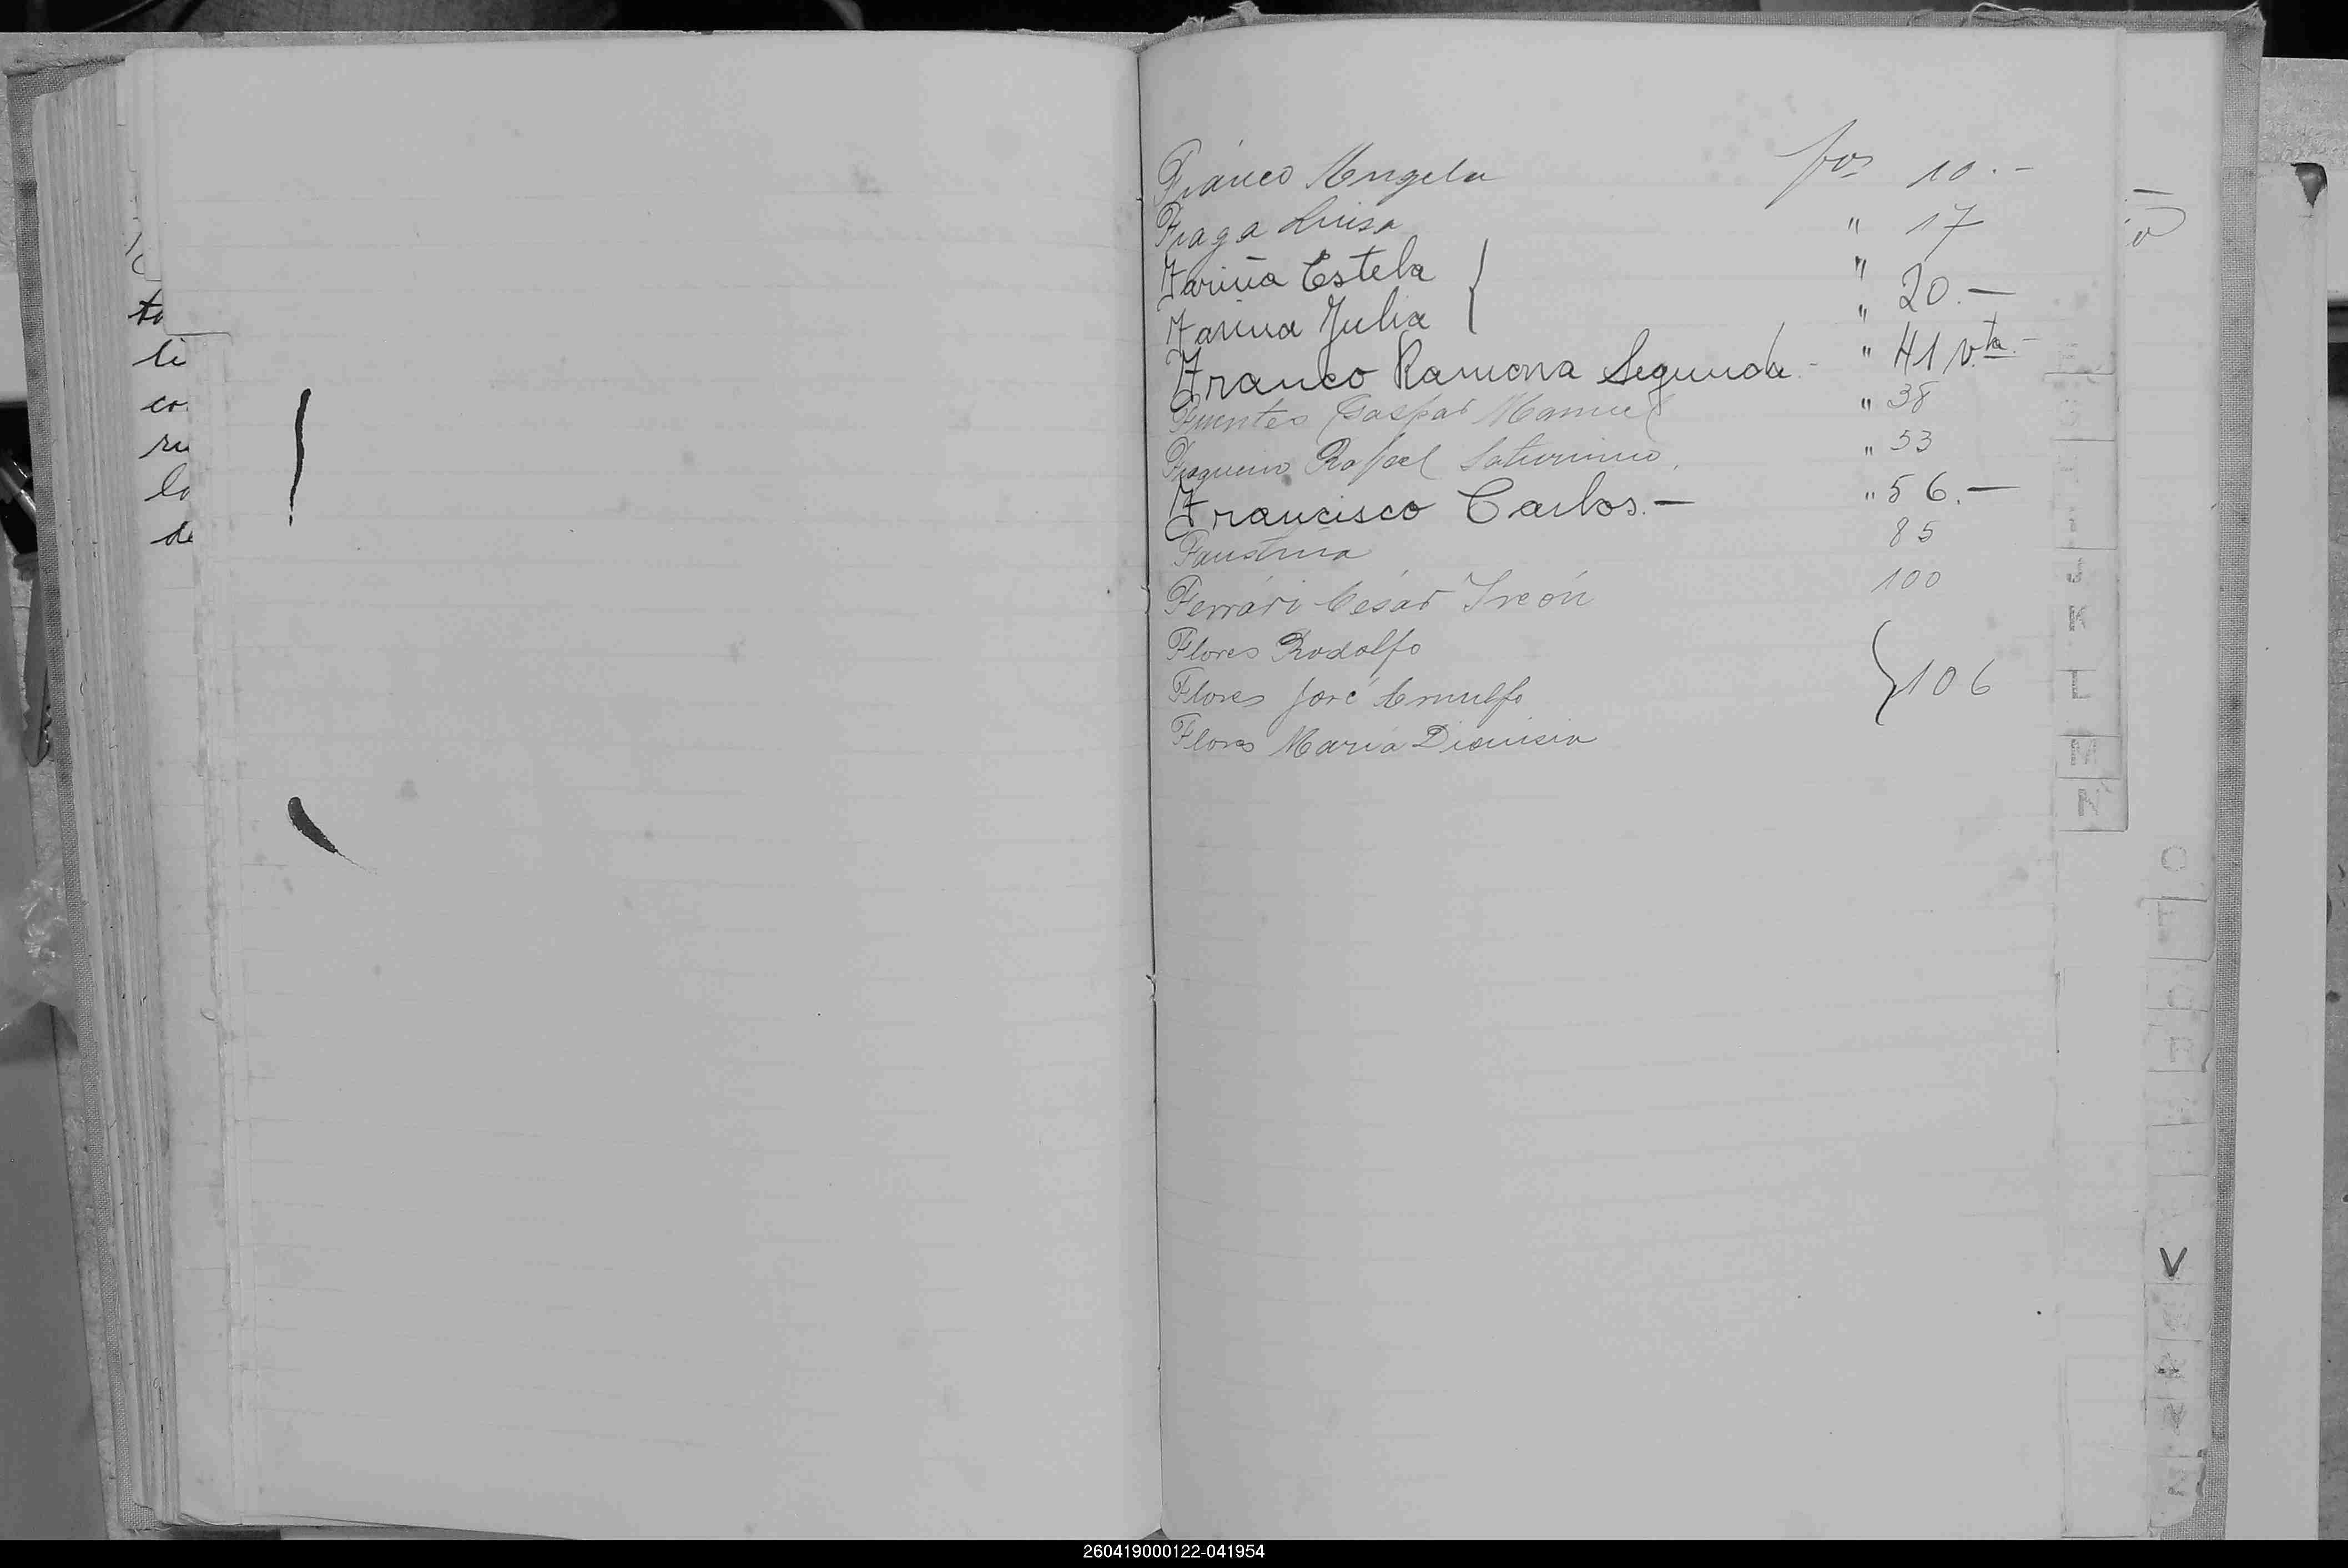 to
li
co
ru
lo
de
Franco Angela fos 10.-
Fraga Luisa " 17
Fariña Estela "
20.-
Farina Julia "
Franco Ramona Segunda.- " 41 vta.-
Fuentes Gaspar Manuel " 38
Rafael Saturnino. " 53
Francisco Carlos.- " 56.-
Faustina 85
Ferrari César Ireón 100
Flores Rodolfo
Flores José Arnulfo } 106
Flores María Dionisia
K
L
M
N
O
V
260419000122-041954